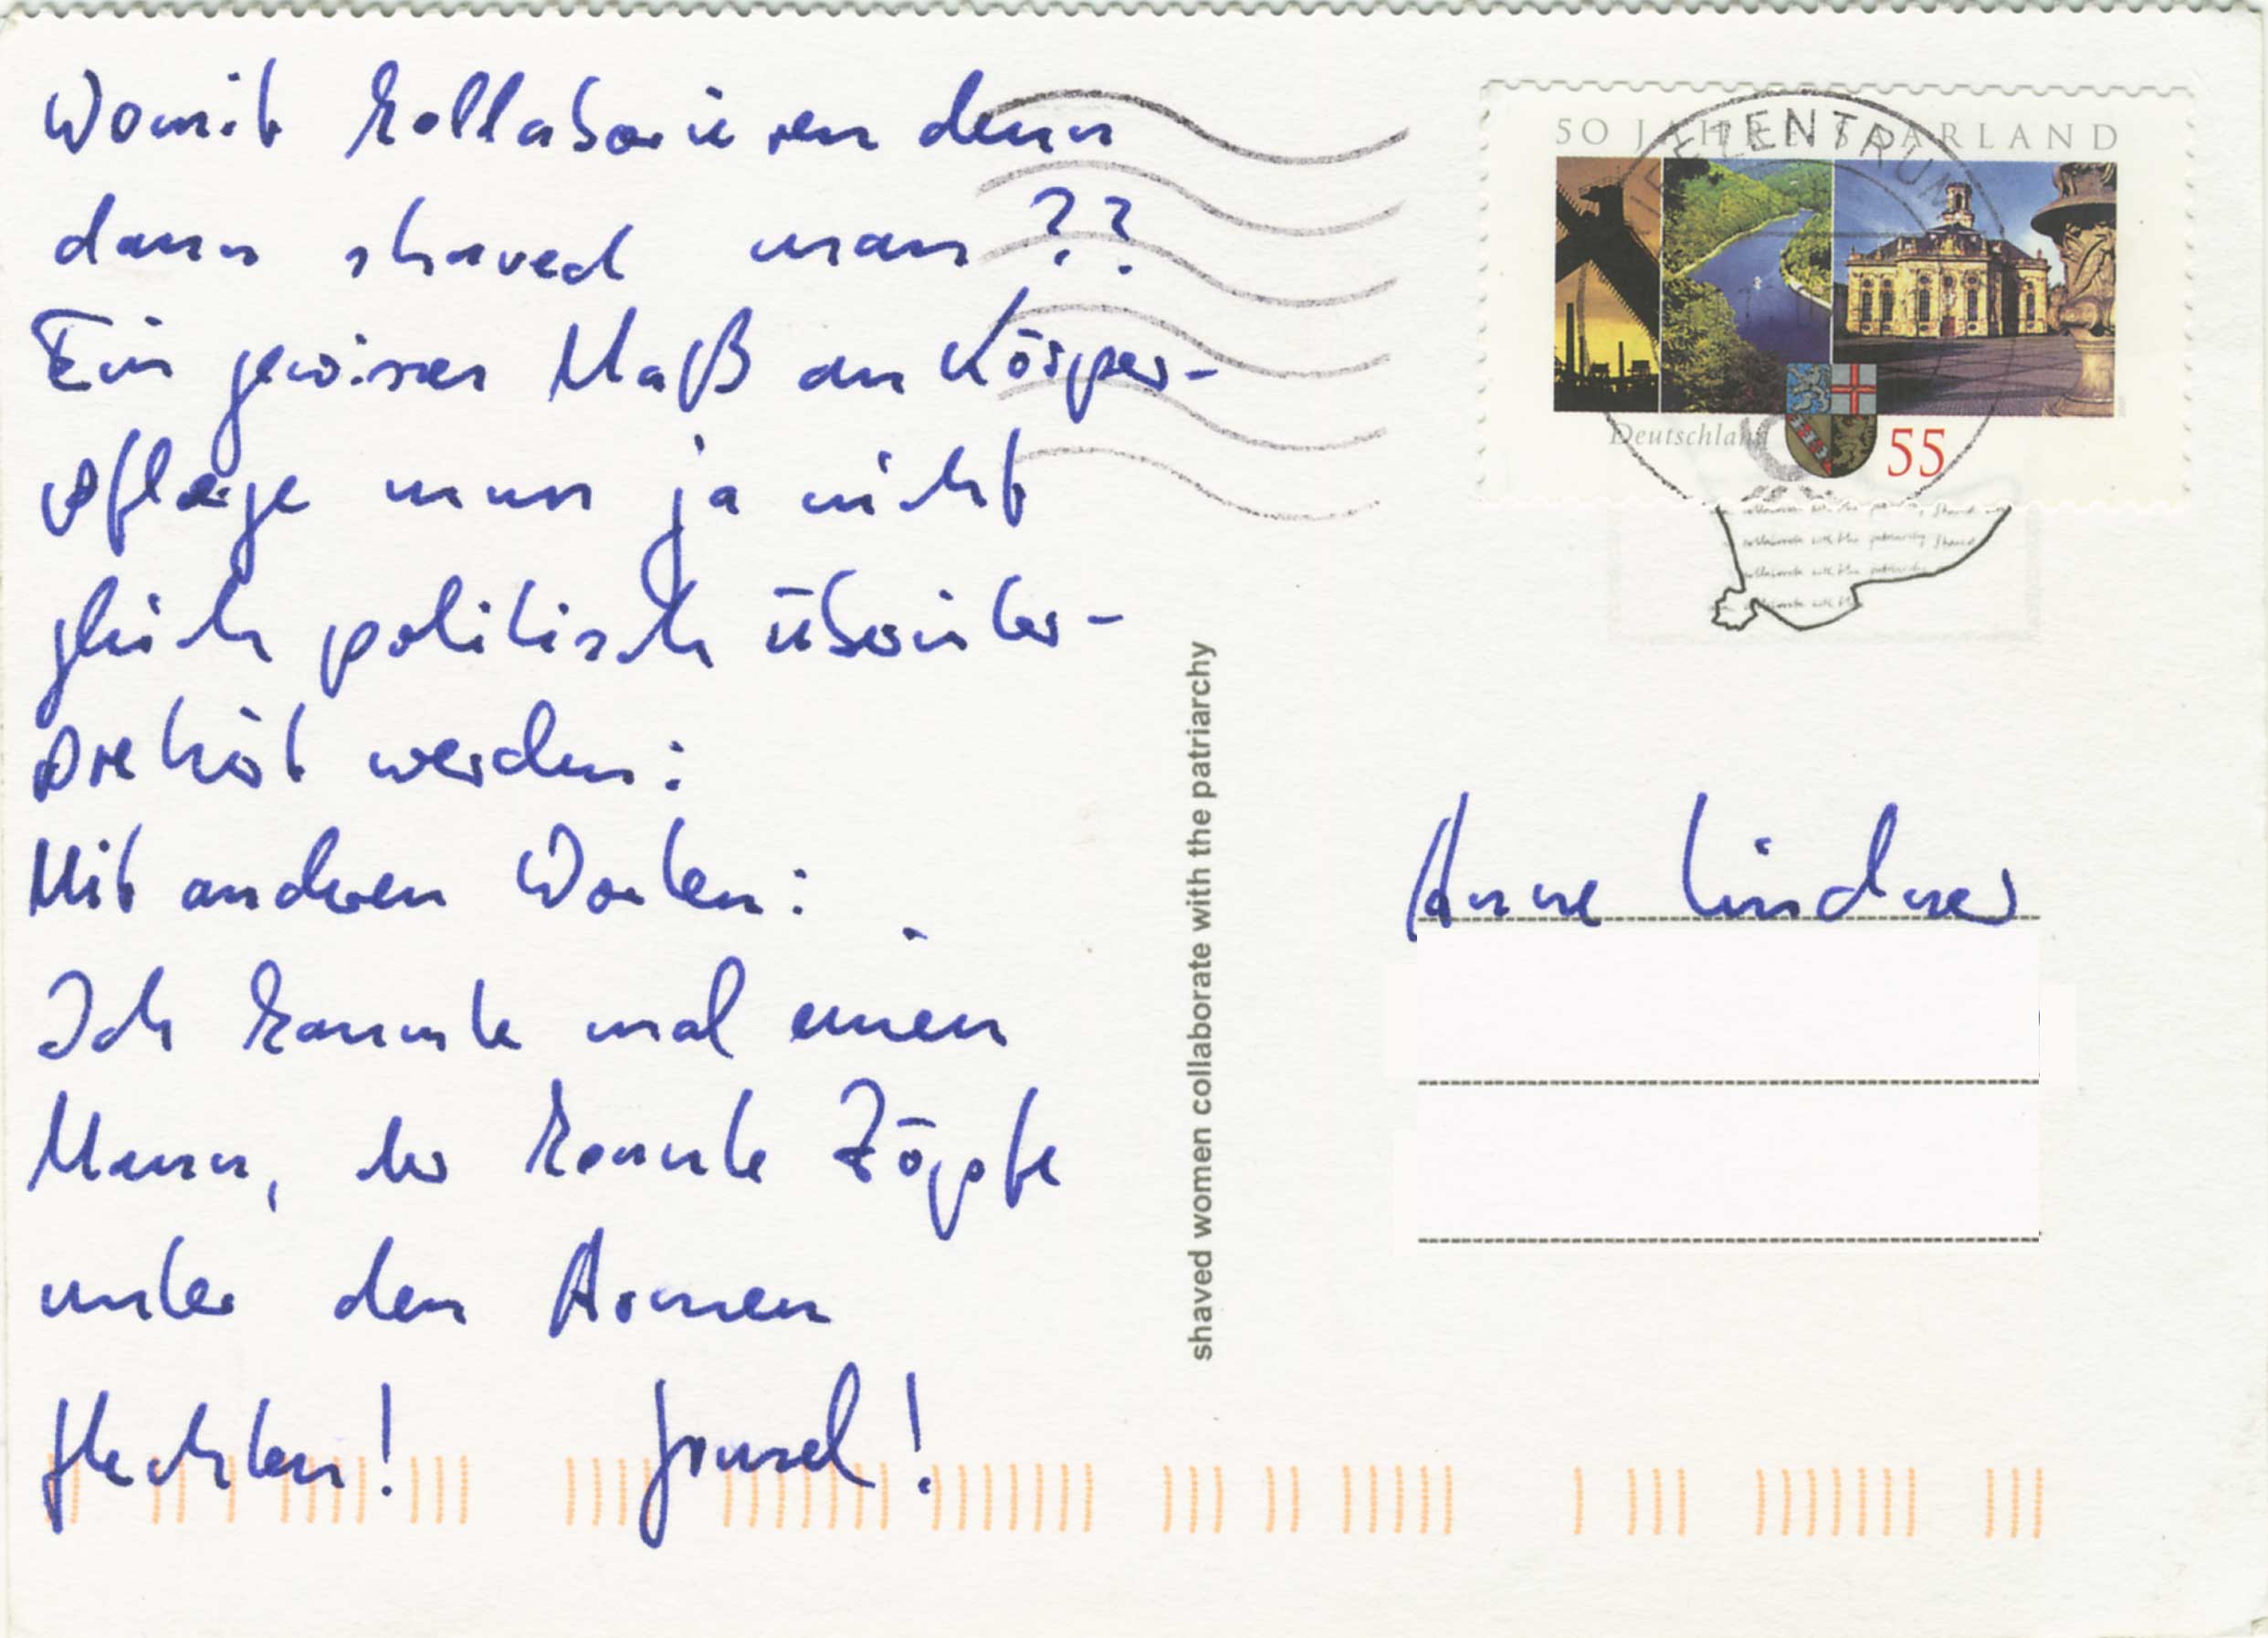 Womit kollaborieren denn
dann shaved man ??
Ein gewisses Maß an Körper-
pflege muss ja nicht
gleich politisch überinter-
pretiert werden:
Mit anderen Worten:
Ich kannte mal einen
Mann, der konnte Zöpfe
unter den Armen
flechten! Grusel!
shaved women collaborate with the patriarchy
50 JAHRE SAARLAND
BRIEFZENTRUM
Deutschland
55
Anne Lindner